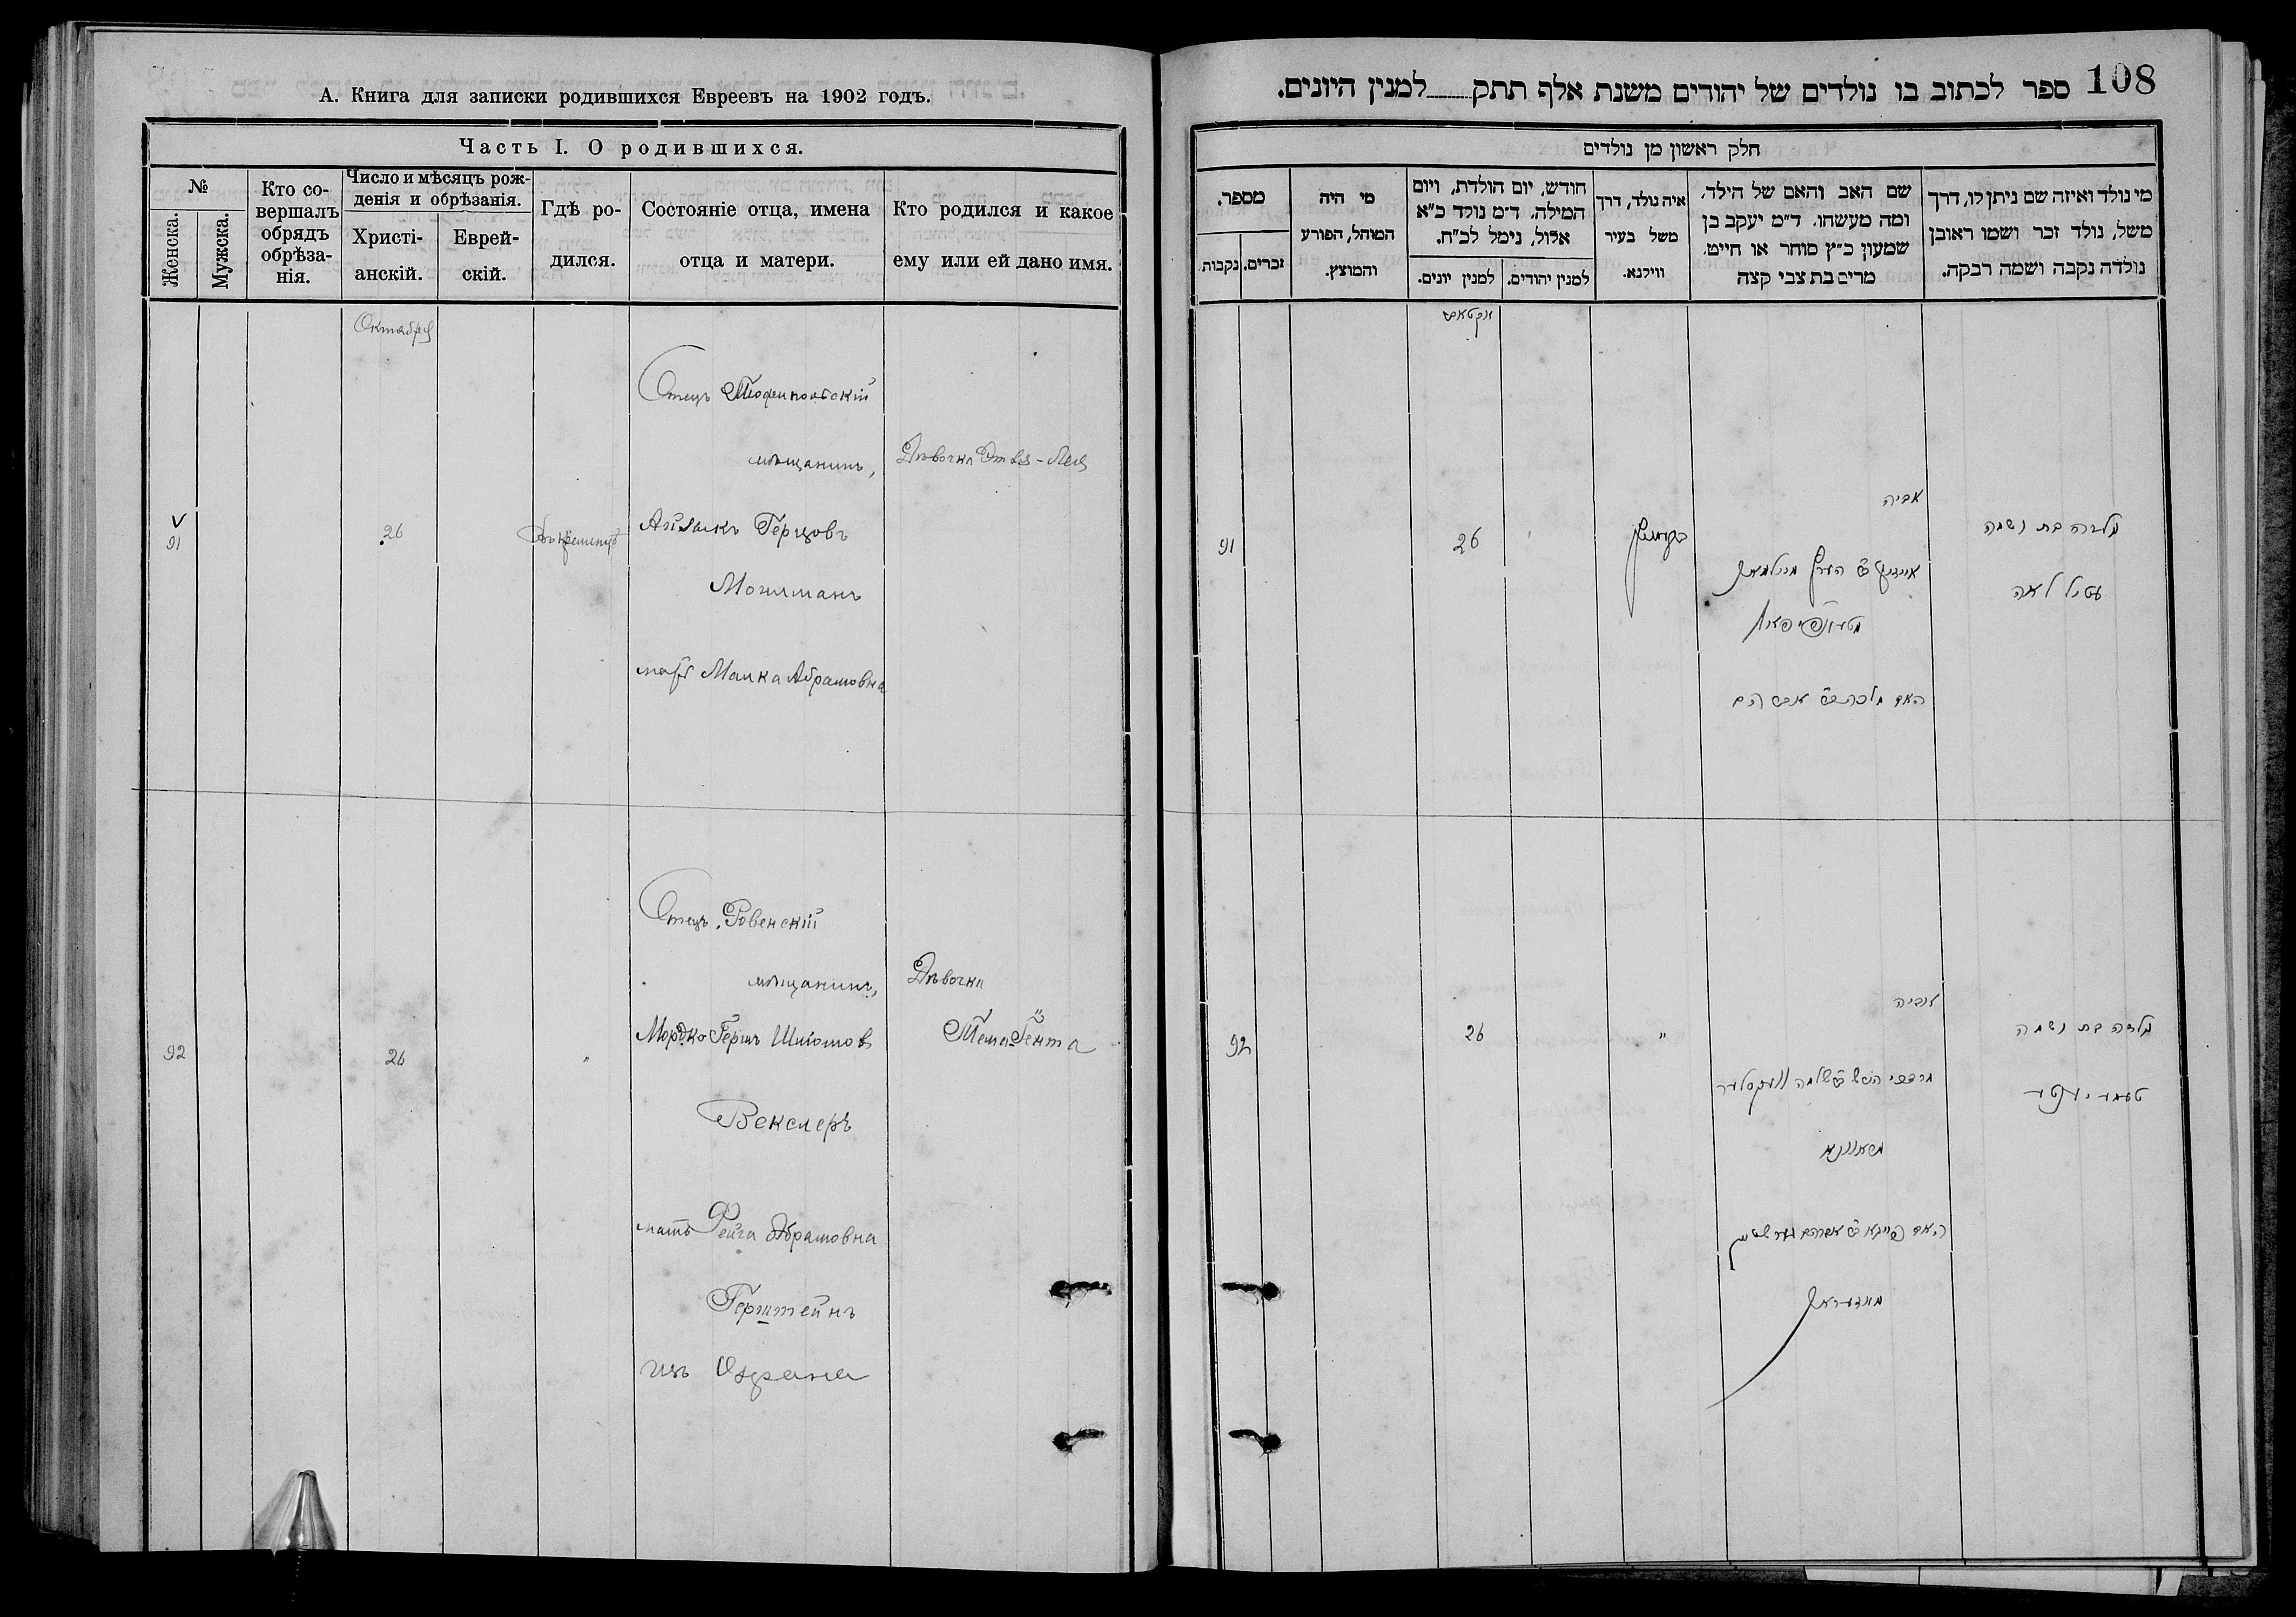 А. Книга для записки родившихся Евреевъ на 1902 годъ.
Часть I. О родившихся.
№
Женска.
Мужска.
Кто со-
вершалъ
обрядъ
обрѣза-
нія.
Число и мѣсяцъ рож-
денія и обрѣзанія.
Христі-
анскій.
Еврей-
скій.
Гдѣ ро-
дился.
Состояніе отца, имена
отца и матери.
Кто родился и какое
ему или ей дано имя.
Октября
91
26
Отецъ
мѣщанинъ,
Айзыкъ Герцовъ
мать Малка Абрамовна
Дѣвочка Этля-Лея
92
26
"
Отецъ Ровенскій
мѣщанинъ,
Мордко Гершъ Шліомов
Векслеръ
мать Фейга Абрамовна
Герштейнъ
изъ
Дѣвочка
Тема Гента
108
ספר לכתוב בו נולדים של יהודים משנת אלף תתק למנין היונים.
חלק ראשון מן נולדים
מי נולד ואיזה שם ניתן לו, דרך
משל, נולד זכר ושמו ראובן
נולדה נקבה ושמה רבקה.
שם האב והאם של הילד,
ומה מעשהו. ד"מ יעקב בן
שמעון כ"ץ סוחר או חייט,
מרים בת צבי קצה
איה נולד, דרך
משל בעיר
ווילנא.
חודש, יום הולדת, ויום
המילה, ד"מ נולד כ"א
אלול, נימל לכ"ח.
למנין יהודים.
למנין יונים.
מי היה
המוהל, הפורע
והמוצץ.
מספר.
זכרים.
נקבות
אקטאב
נולדה בת ושמה
עטיל לאה
אביה
האם מלכה בת אברהם
26
91
נולדה בת ושמה
אביה
מרדכי הירש בן שלמה וועקסלער
"
26
92